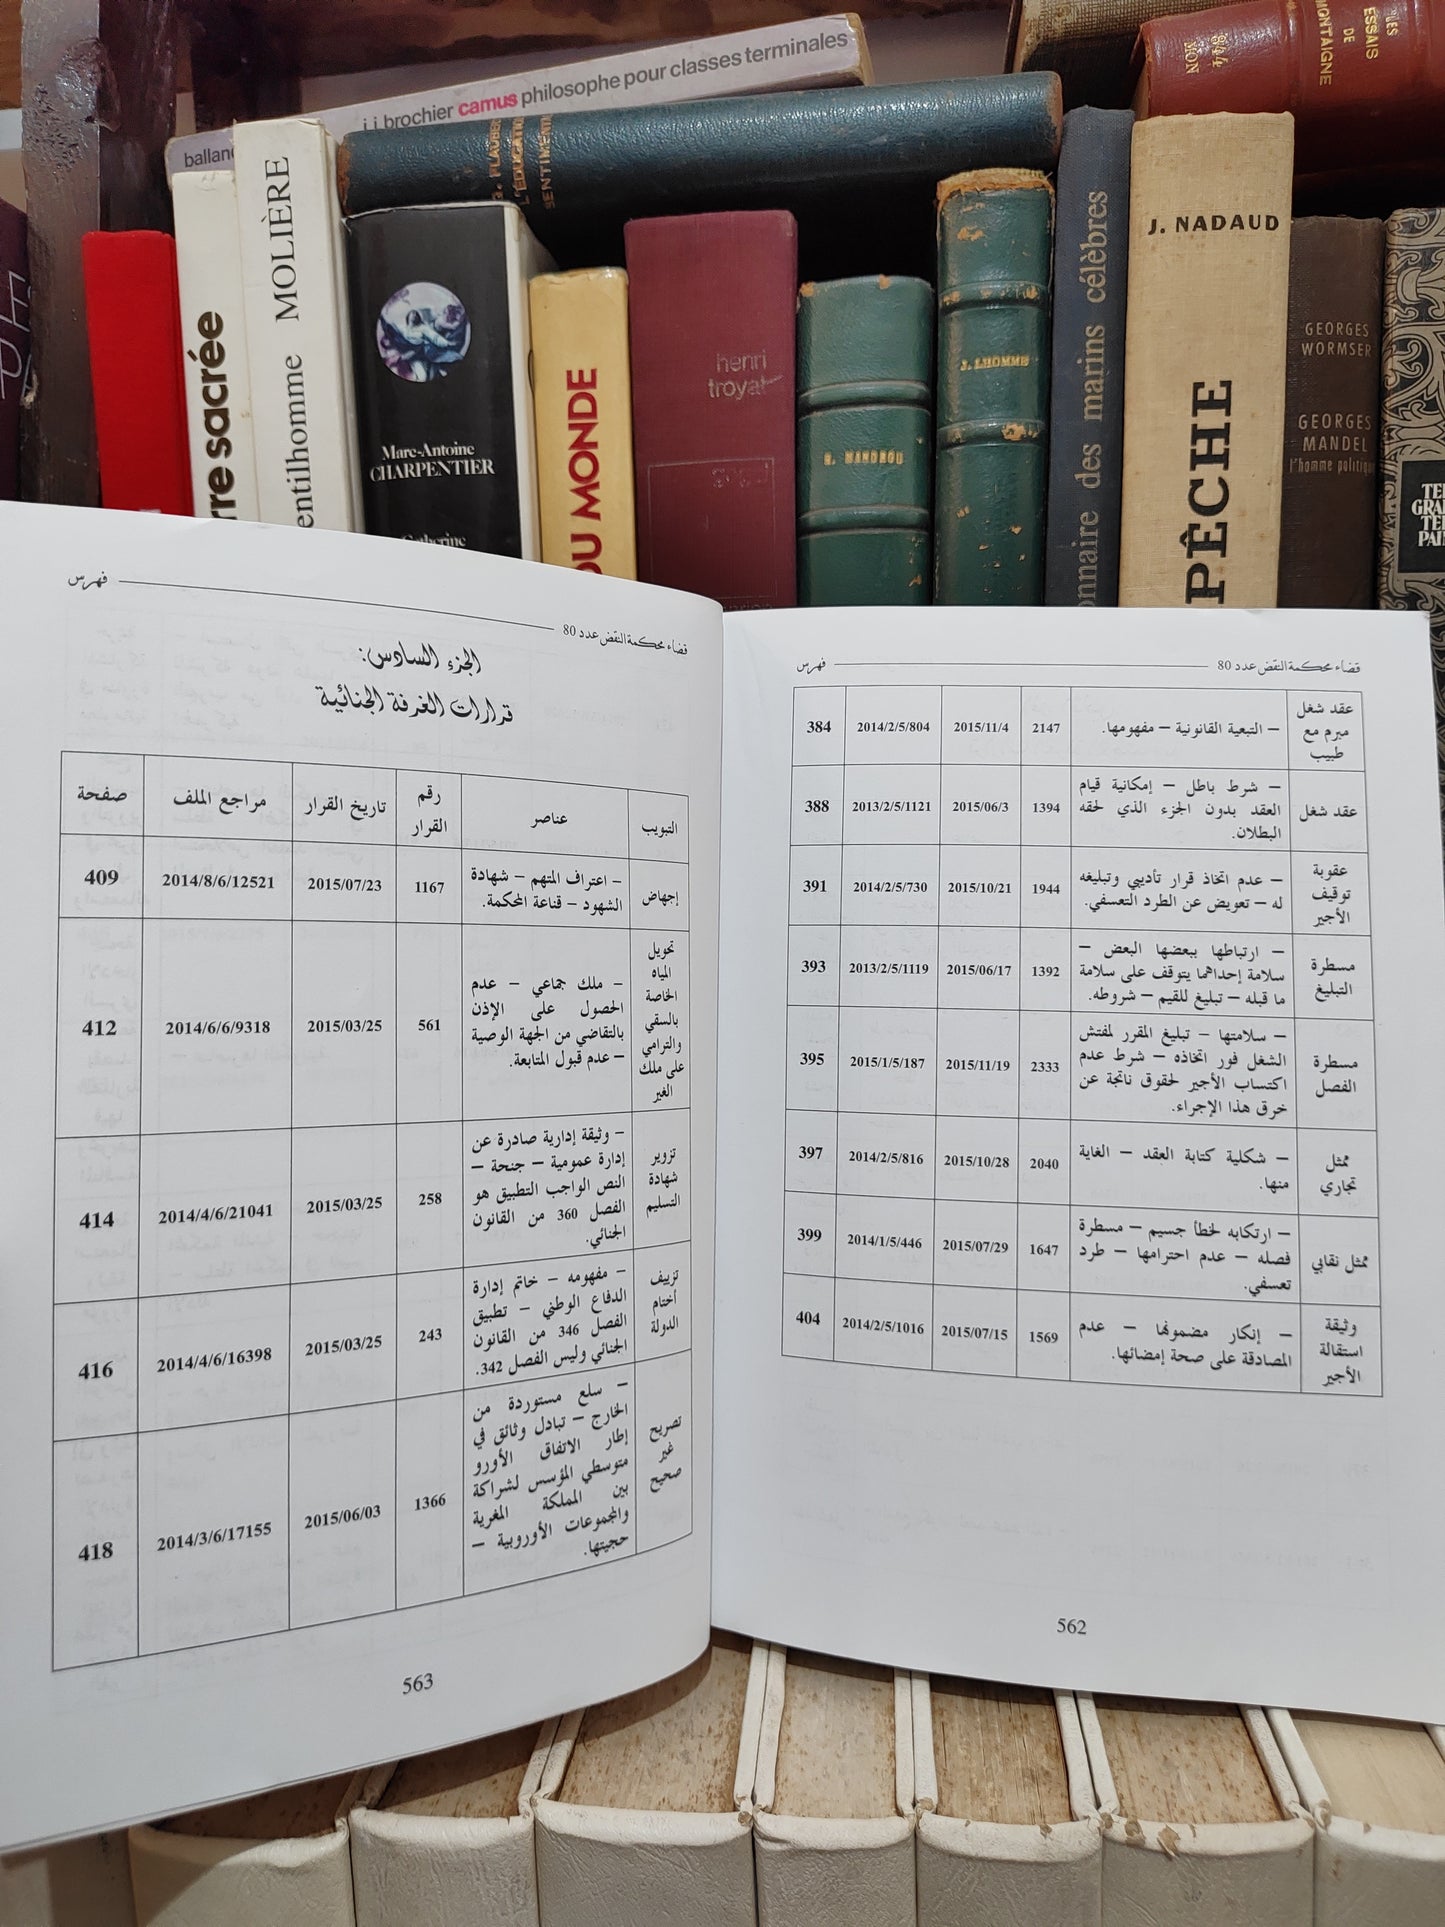 j.j. brochier camus philosophe pour classes terminales
G. FLAUBERT
L'ÉDUCATION
SENTIMENTALE
LES
ESSAIS
DE
MONTAIGNE
MOLIÈRE
entilhomme
rre sacrée
Marc-Antoine
CHARPENTIER
Catherine
DU MONDE
henri
troyat
R. MANDROU
J. LHOMME
onnaire des marins célèbres
J. NADAUD
PÊCHE
GEORGES
WORMSER
GEORGES
MANDEL
l'homme politique
قضاء محكمة النقض عدد 80 فهرس
عقد شغل مبرم مع طبيب – التبعية القانونية – مفهومها. 2147 2015/11/4 2014/2/5/804 384
عقد شغل – شرط باطل – إمكانية قيام
العقد بدون الجزء الذي لحقه
البطلان. 1394 2015/06/3 2013/2/5/1121 388
عقوبة توقيف الأجير – عدم اتخاذ قرار تأديبي وتبليغه
له – تعويض عن الطرد التعسفي. 1944 2015/10/21 2014/2/5/730 391
مسطرة التبليغ – ارتباطها ببعضها البعض –
سلامة إحداهما يتوقف على سلامة
ما قبله – تبليغ للقيم – شروطه. 1392 2015/06/17 2013/2/5/1119 393
مسطرة الفصل – سلامتها – تبليغ المقرر لمفتش
الشغل فور اتخاذه – شرط عدم
اكتساب الأجير لحقوق ناتجة عن
خرق هذا الإجراء. 2333 2015/11/19 2015/1/5/187 395
ممثل تجاري – شكلية كتابة العقد – الغاية
منها. 2040 2015/10/28 2014/2/5/816 397
ممثل نقابي – ارتكابه لخطأ جسيم – مسطرة
فصله – عدم احترامها – طرد
تعسفي. 1647 2015/07/29 2014/1/5/446 399
وثيقة استقالة الأجير – إنكار مضمونها – عدم
المصادقة على صحة إمضائها. 1569 2015/07/15 2014/2/5/1016 404
562
قضاء محكمة النقض عدد 80 فهرس
الجزء السادس:
قرارات الغرفة الجنائية
التبويب عناصر رقم القرار تاريخ القرار مراجع الملف صفحة
إجهاض – اعتراف المتهم – شهادة
الشهود – قناعة المحكمة. 1167 2015/07/23 2014/8/6/12521 409
تحويل المياه الخاصة بالسقي والترامي على ملك الغير – ملك جماعي – عدم
الحصول على الإذن
بالتقاضي من الجهة الوصية
– عدم قبول المتابعة. 561 2015/03/25 2014/6/6/9318 412
تزوير شهادة التسليم – وثيقة إدارية صادرة عن
إدارة عمومية – جنحة –
النص الواجب التطبيق هو
الفصل 360 من القانون
الجنائي. 258 2015/03/25 2014/4/6/21041 414
تزييف أختام الدولة – مفهومه – خاتم إدارة
الدفاع الوطني – تطبيق
الفصل 346 من القانون
الجنائي وليس الفصل 342. 243 2015/03/25 2014/4/6/16398 416
تصريح غير صحيح – سلع مستوردة من
الخارج – تبادل وثائق في
إطار الاتفاق الأورو
متوسطي المؤسس لشراكة
بين المملكة المغربية
والمجموعات الأوروبية –
حجيتها. 1366 2015/06/03 2014/3/6/17155 418
563